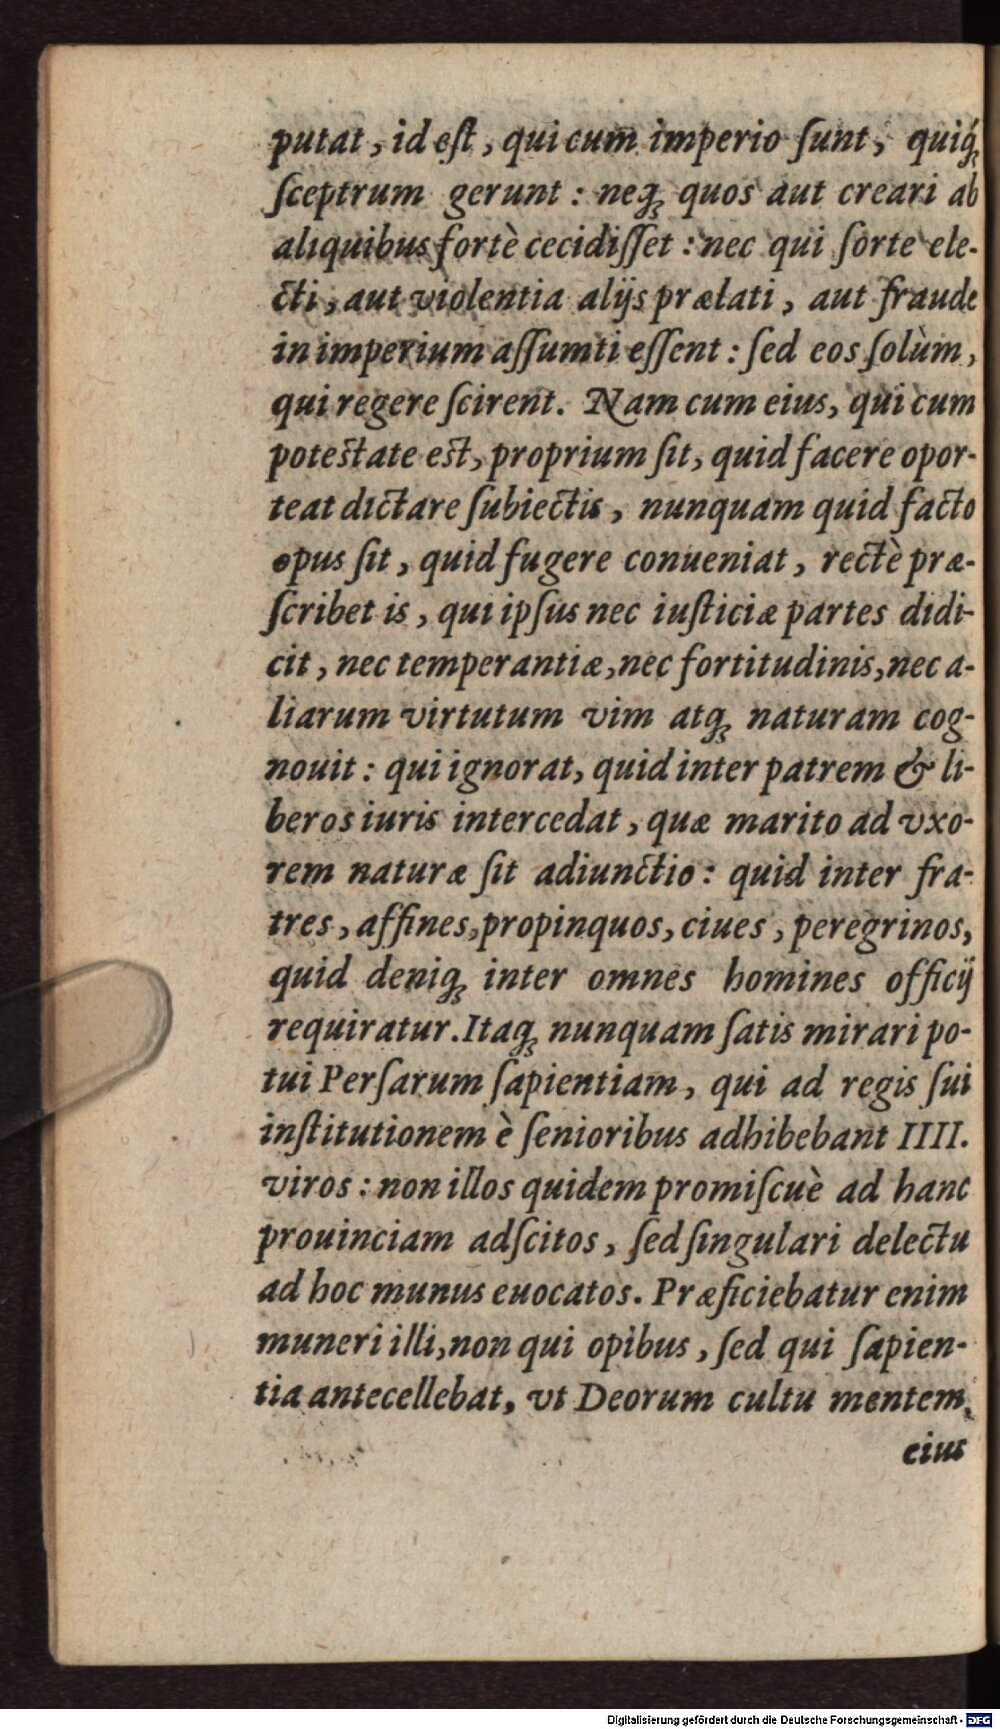 putat, id eſt, qui cum imperio ſunt, quiq́ꝫ
ſceptrum gerunt: neqꝫ quos aut creari ab
aliquibus fortè cecidiſſet: nec qui ſorte ele-
cti, aut violentia alijs prælati, aut fraude
in imperium aſſumti eſſent: ſed eos ſolùm,
qui regere ſcirent. Nam cum eius, qui cum
poteſtate eſt, proprium ſit, quid facere opor-
teat dictare ſubiectis, nunquam quid facto
opus ſit, quid fugere conueniat, rectè præ-
ſcribet is, qui ipſus nec iuſticiæ partes didi-
cit, nec temperantiæ, nec fortitudinis, nec a-
liarum virtutum vim atqꝫ naturam cog-
nouit: qui ignorat, quid inter patrem & li-
beros iuris intercedat, quæ marito ad vxo-
rem naturæ ſit adiunctio: quid inter fra-
tres, affines, propinquos, ciues, peregrinos,
quid deniqꝫ inter omnes homines officij
requiratur. Itaqꝫ nunquam ſatis mirari po-
tui Perſarum ſapientiam, qui ad regis ſui
inſtitutionem è ſenioribus adhibebant IIII.
viros: non illos quidem promiſcuè ad hanc
prouinciam adſcitos, ſed ſingulari delectu
ad hoc munus euocatos. Præficiebatur enim
muneri illi, non qui opibus, ſed qui ſapien-
tia antecellebat, vt Deorum cultu mentem
eius
Digitalisierung gefördert durch die Deutsche Forschungsgemeinschaft - DFG